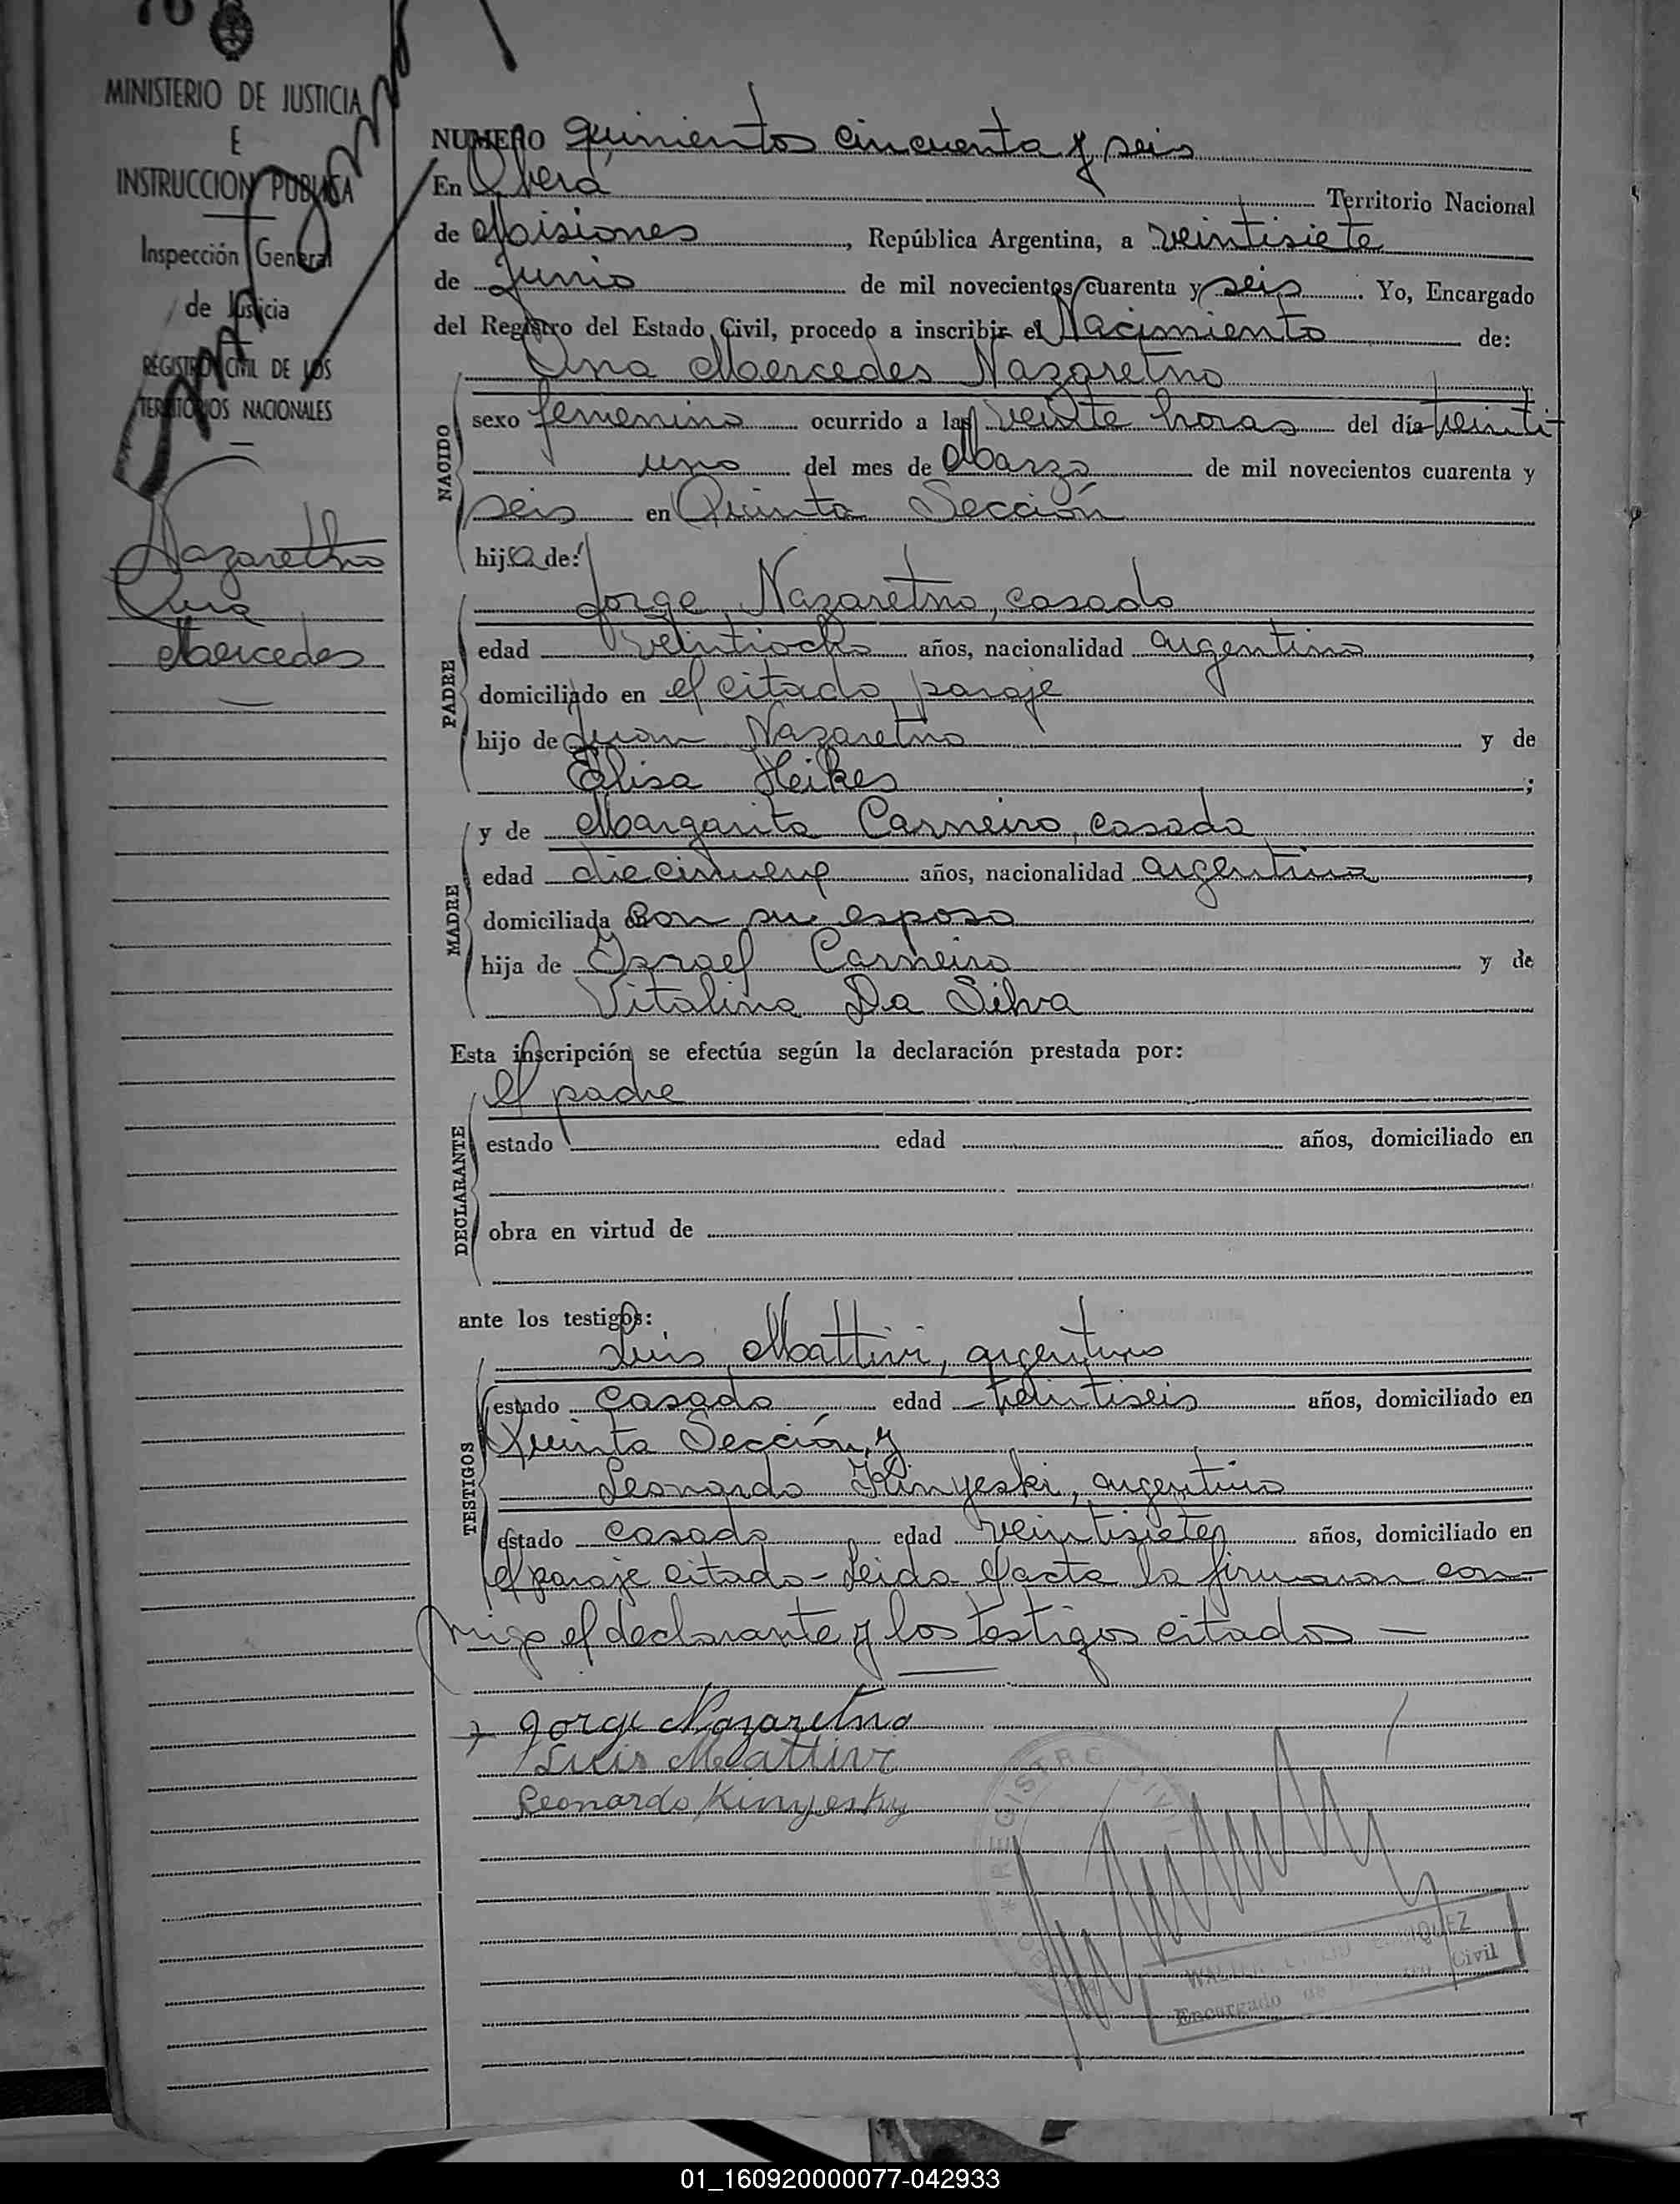 70
MINISTERIO DE JUSTICIA
E
INSTRUCCION PUBLICA
Inspección General
de Justicia
REGISTRO CIVIL DE LOS
TERRITORIOS NACIONALES
Nazaretno
Ana
Mercedes
NUMERO quinientos cincuenta y seis
En Oberá Territorio Nacional
de Misiones, República Argentina, a veintisiete
de Junio de mil novecientos cuarenta y seis. Yo, Encargado
del Registro del Estado Civil, procedo a inscribir el Nacimiento de:
NACIDO
Ana Mercedes Nazaretno
sexo femenino ocurrido a las veinte horas del día veinti
uno del mes de Marzo de mil novecientos cuarenta y
seis en Quinta Sección
hija de:
PADRE
Jorge Nazaretno, casado
edad veintiocho años, nacionalidad argentino,
domiciliado en el citado paraje
hijo de Juan Nazaretno y de
Elisa Heikes;
MADRE
y de Margarita Carneiro, casada
edad diecinueve años, nacionalidad argentina,
domiciliada con su esposo
hija de Israel Carneiro y de
Vitalina Da Silva
Esta inscripción se efectúa según la declaración prestada por:
DECLARANTE
el padre
estado edad años, domiciliado en
obra en virtud de
ante los testigos:
TESTIGOS
Luis Mattivi, argentino
estado casado edad veintiseis años, domiciliado en
Quinta Sección, y
Leonardo Kinyeski, argentino
estado casado edad veintisiete años, domiciliado en
el paraje citado - Leida el acta la firmaron con-
migo el declarante y los testigos citados —
Jorge Nazaretno
Luis Mattivi
Leonardo Kinyesky
REGISTRO CIVIL
Encargado de Civil
01_160920000077-042933